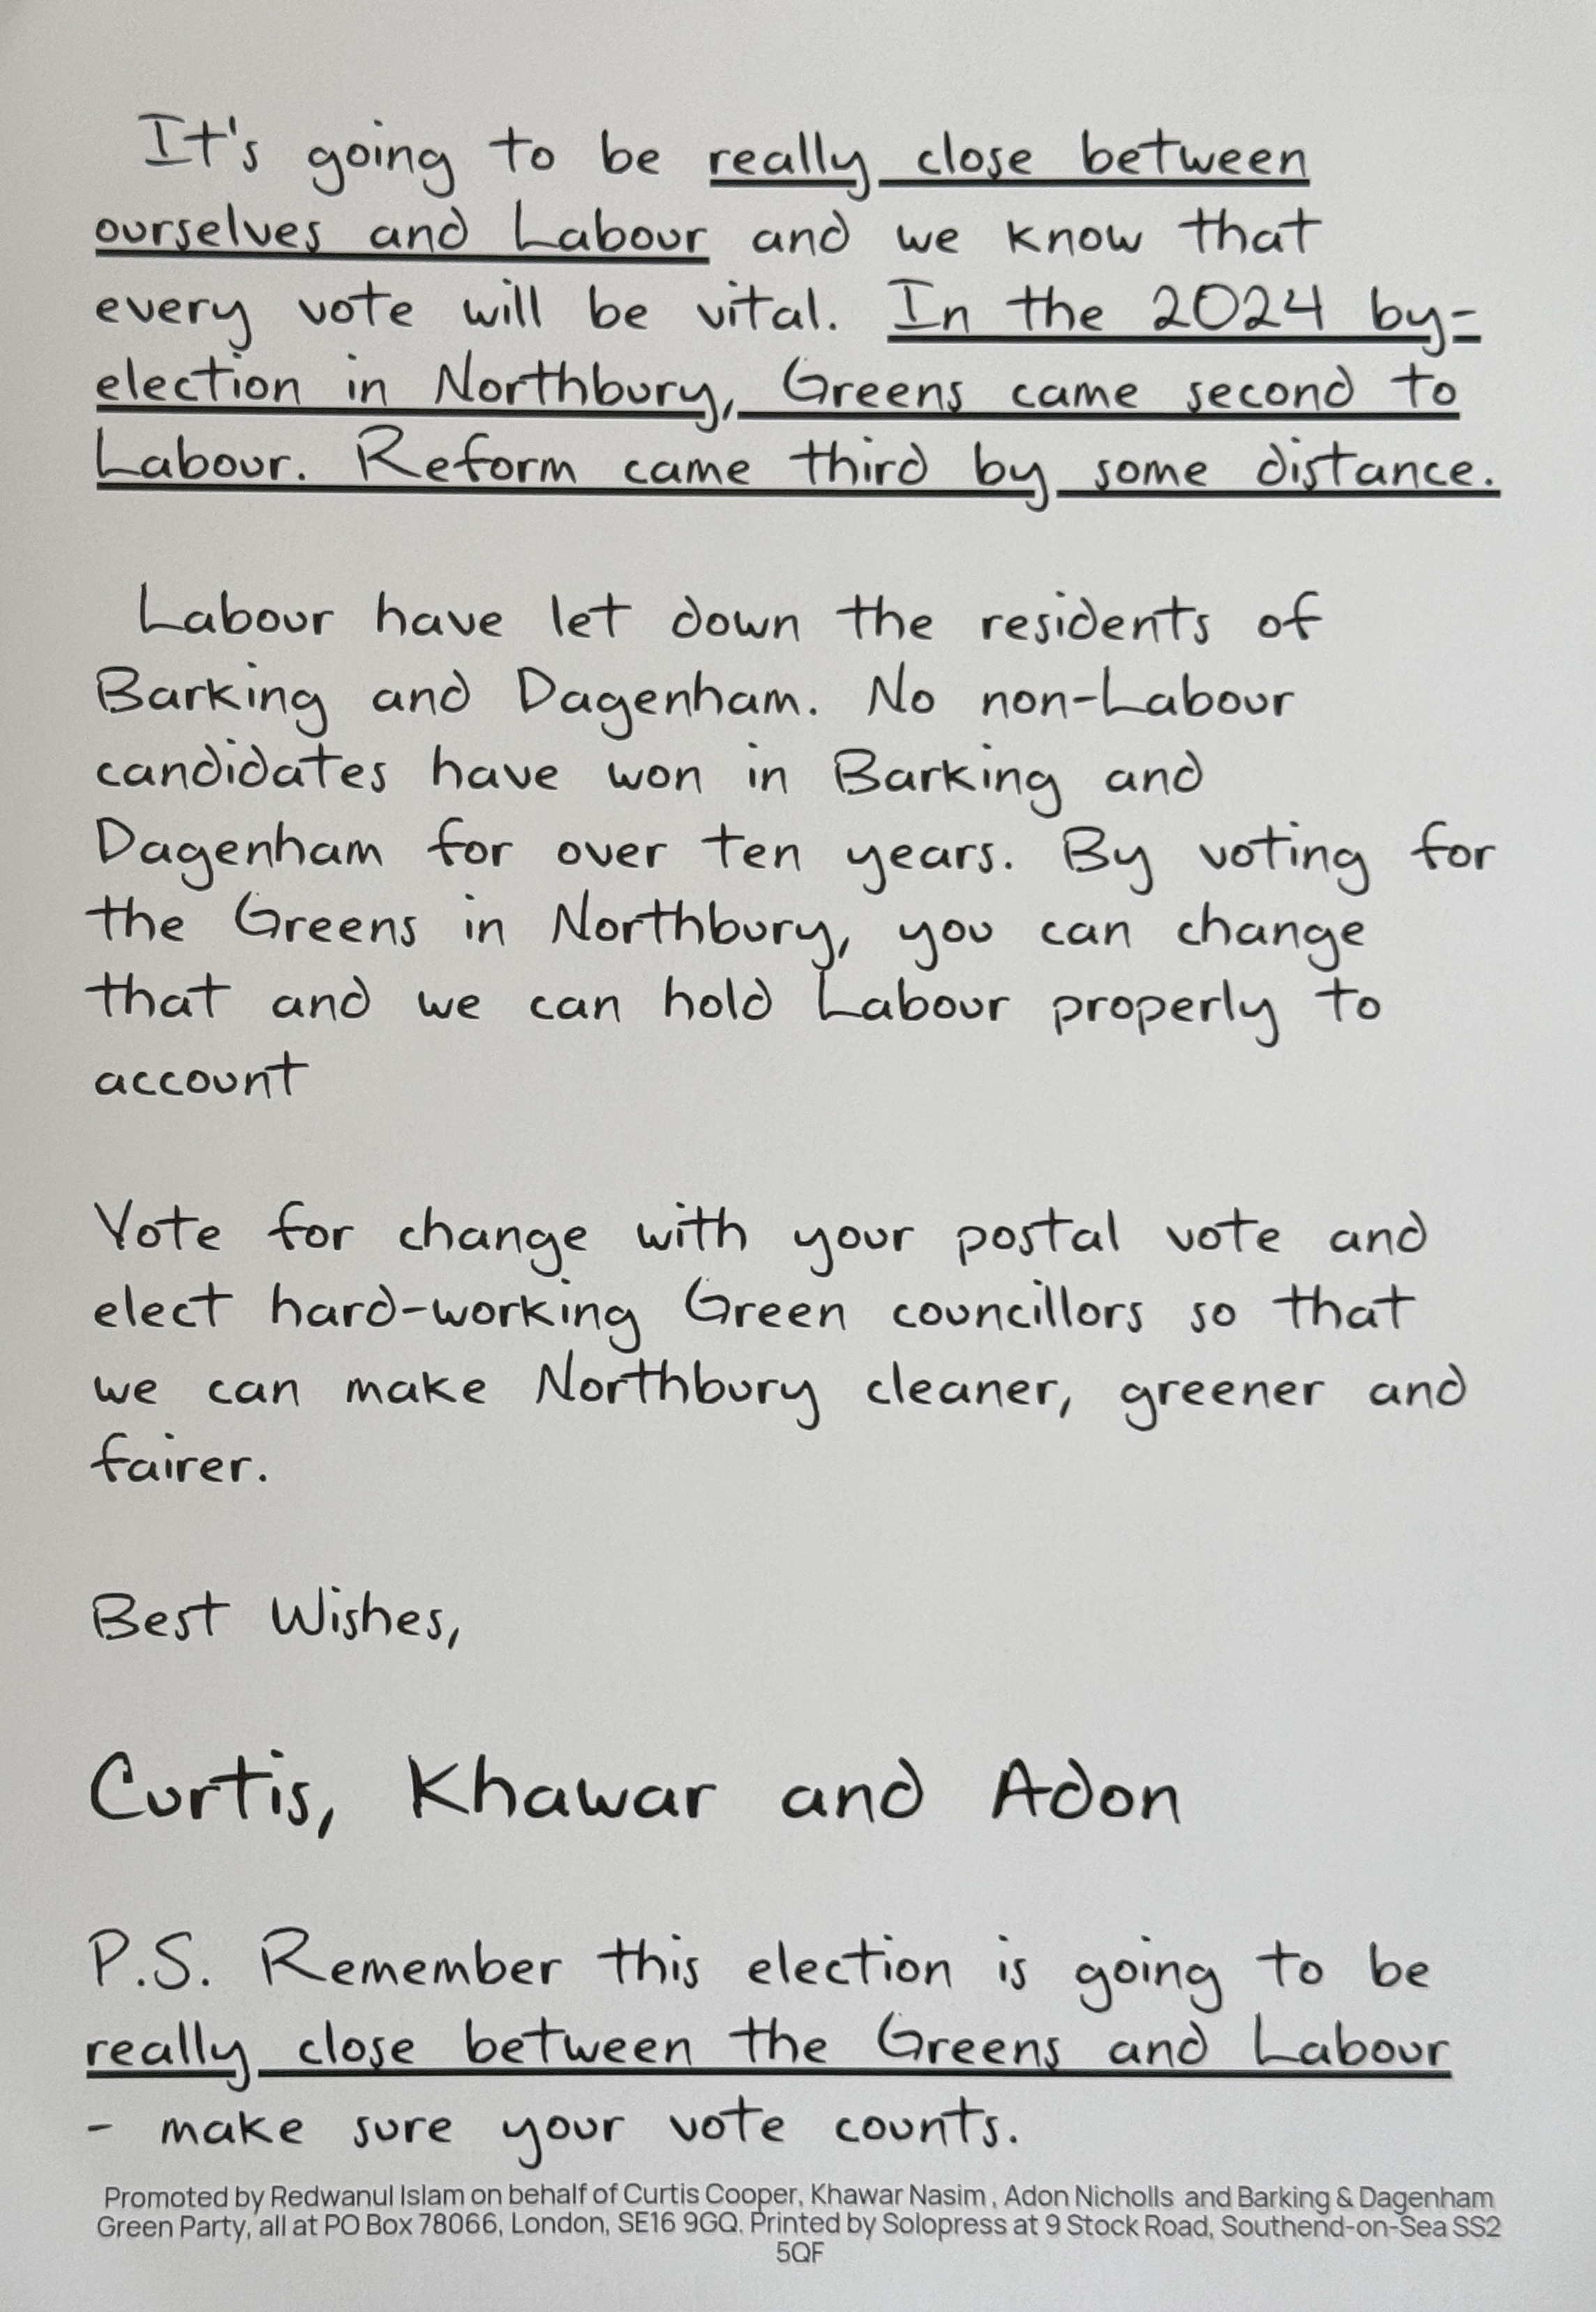 It's going to be really close between
ourselves and Labour and we know that
every vote will be vital. In the 2024 by-
election in Northbury, Greens came second to
Labour. Reform came third by some distance.
Labour have let down the residents of
Barking and Dagenham. No non-Labour
candidates have won in Barking and
Dagenham for over ten years. By voting for
the Greens in Northbury, you can change
that and we can hold Labour properly to
account
Vote for change with your postal vote and
elect hard-working Green councillors so that
we can make Northbury cleaner, greener and
fairer.
Best Wishes,
Curtis, Khawar and Adon
P.S. Remember this election is going to be
really close between the Greens and Labour
- make sure your vote counts.
Promoted by Redwanul Islam on behalf of Curtis Cooper, Khawar Nasim , Adon Nicholls and Barking & Dagenham
Green Party, all at PO Box 78066, London, SE16 9GQ. Printed by Solopress at 9 Stock Road, Southend-on-Sea SS2
5QF